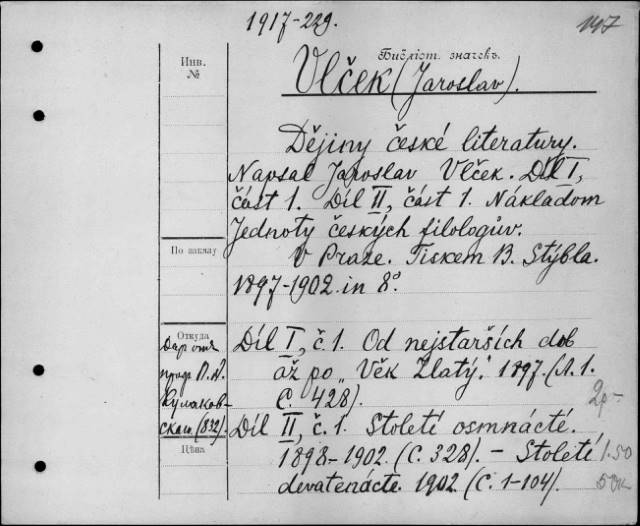 1917-229.
147
Инв.
№
Библіот. значекъ.
Vlček (Jaroslav).
Dějiny české literatury.
Napsal Jaroslav Vlček. Díl I,
část 1. Díl II, část 1. Nákladom
Jednoty českých filologův.
V Praze. Tiskem B. Stýbla.
1897-1902. in 8°.
По каталу
Откуда
Даръ отъ
проф. П. А.
Кулаков-
скаго (832).
Цѣна
Díl I, č. 1. Od nejstarších dob
až po „Věk Zlatý." 1897. (Л. 1.
С. 428).
Díl II, č. 1. Století osmnácté.
1898-1902. (С. 328). – Století
devatenácté. 1902. (С. 1-104).
2р-
1.50
50к